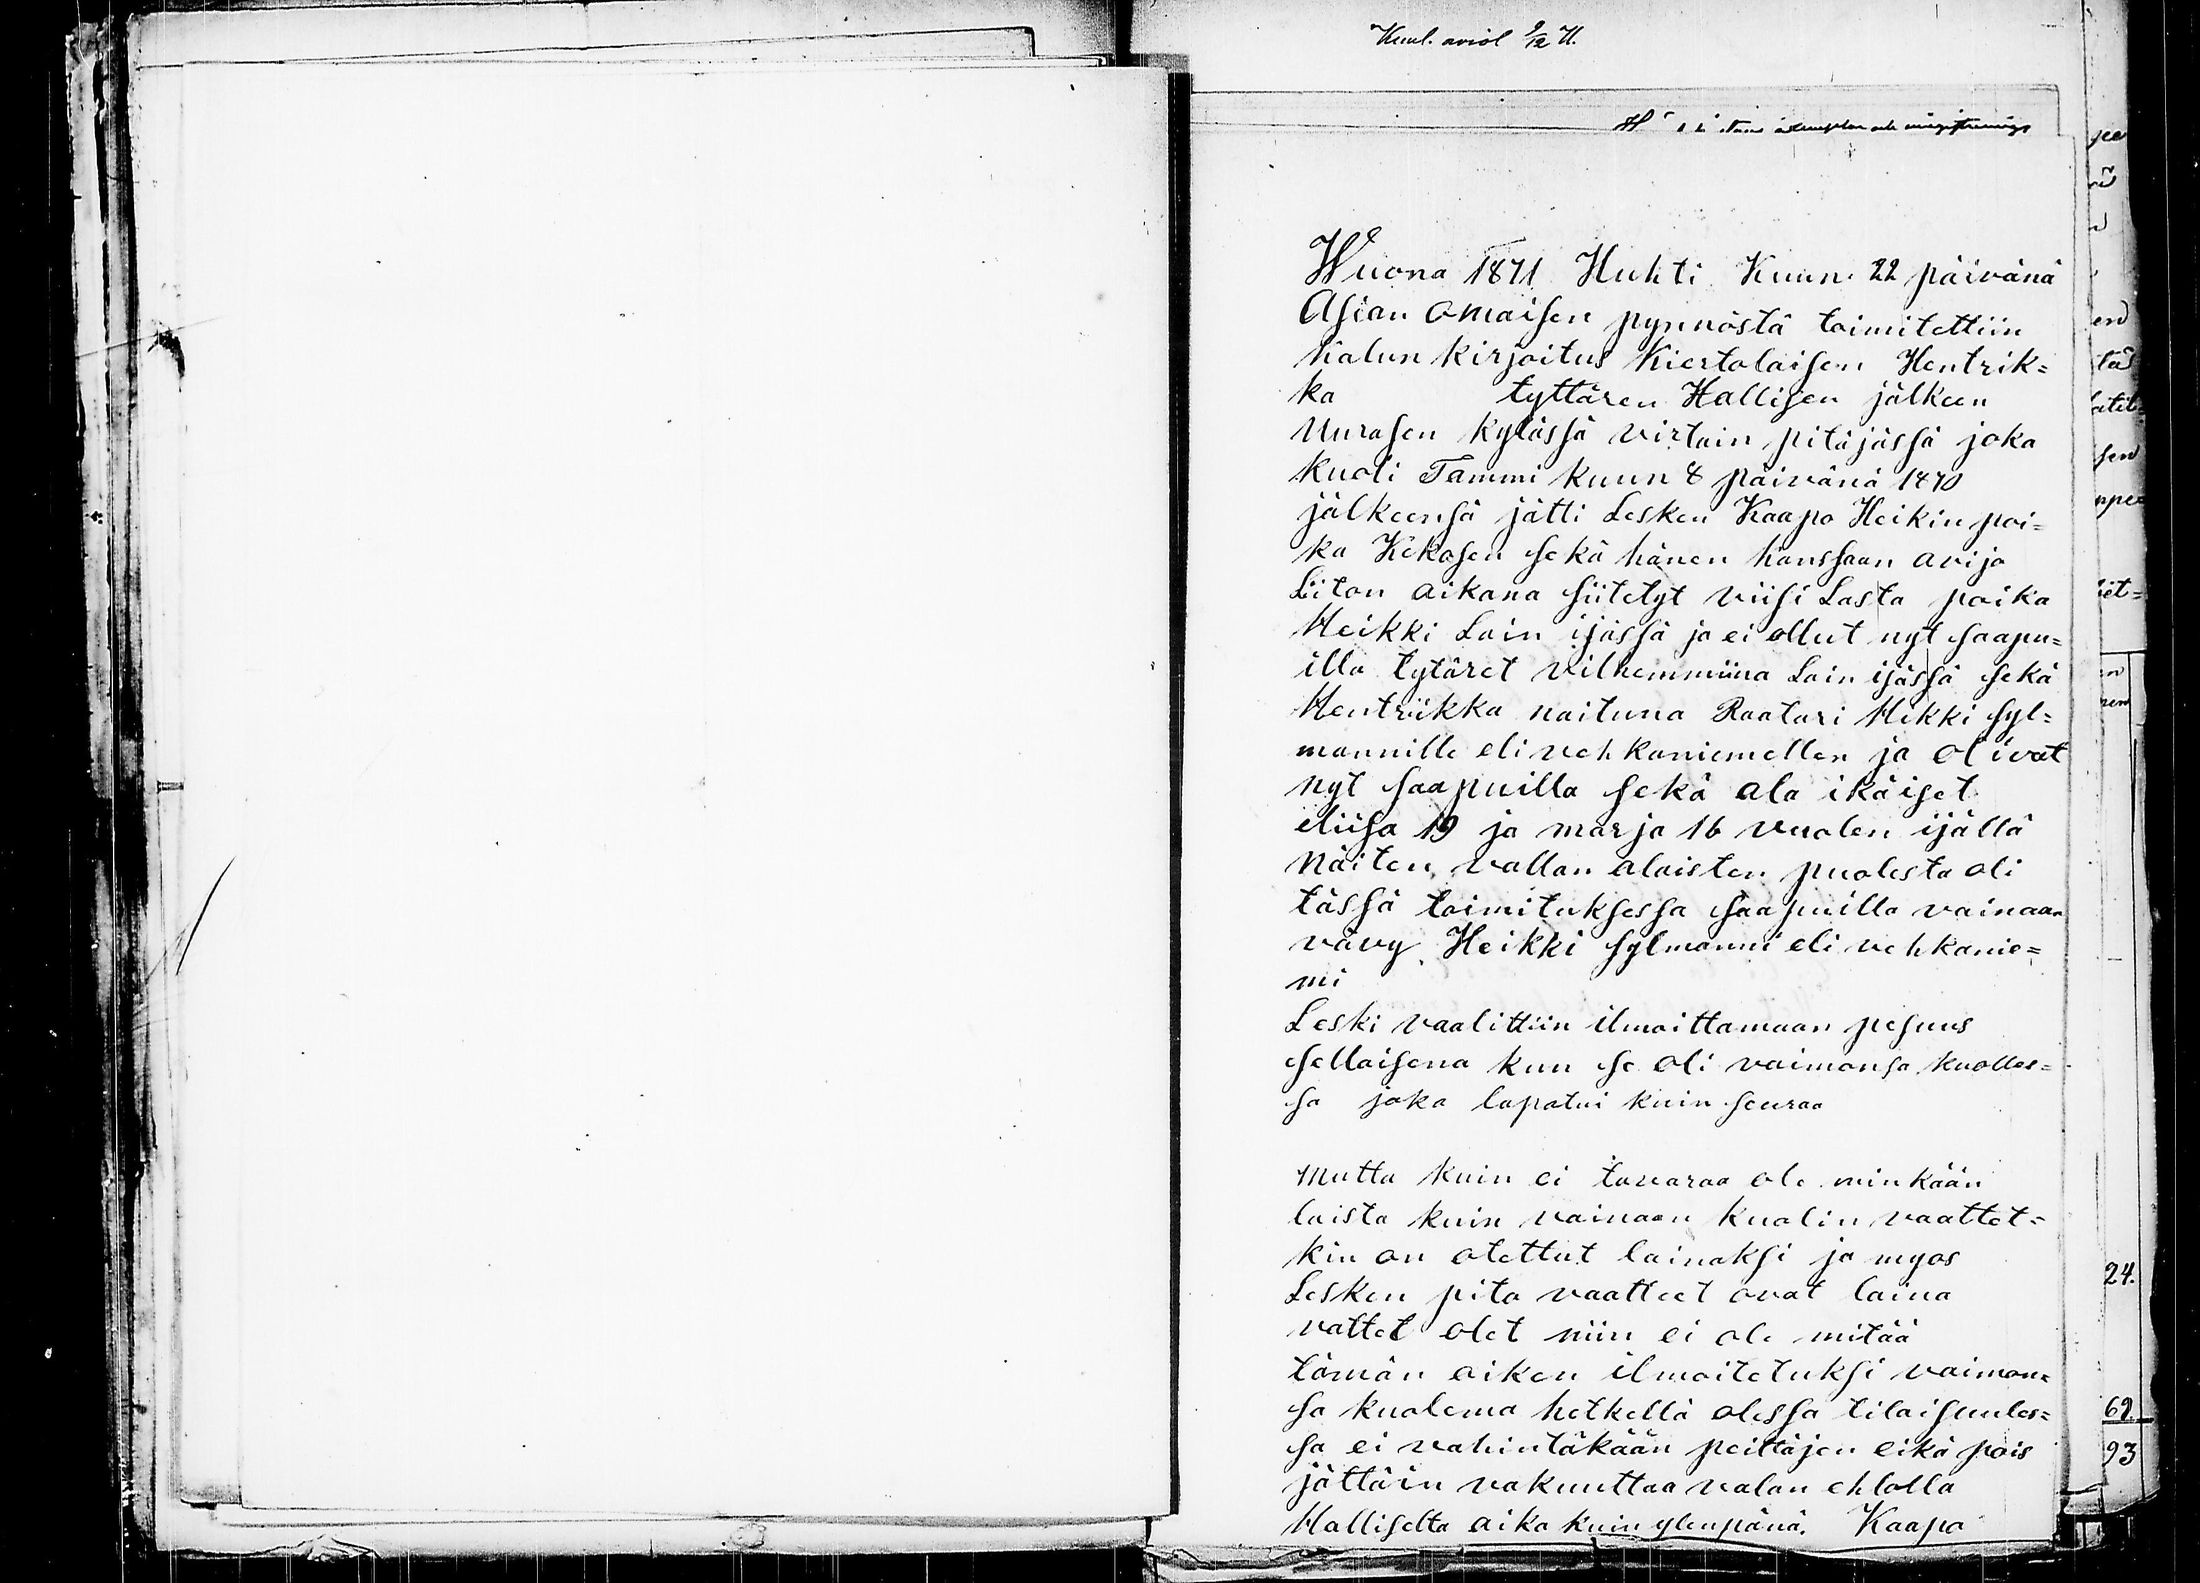 Kuul. aviol 9/12 71.
Wuona 1871 Huhti Kuun 22 päivänä
Asian omaisen pynnöstä toimitettiin
kalun kirjoitus Kiertolaisen Hentrik=
ka tyttären Hallisen jälkeen
Uurasen kylässä virtain pitäjässä joka
kuoli Tammi kuun 8 päivänä 1870
jälkeensä jätti Lesken Kaapo Heikin poi=
ka Kekosen sekä hänen kanssaan avijo
Liiton aikana siitetyt viisi Lasta poika
Heikki Lain ijässä ja ei ollut nyt saapu=
illa tytäret vilhemmiina Lain ijässä sekä
Hentriikka naituna Raatari Hikki syl=
mannille eli vehkaniemellen ja olivat
nyt saapuilla sekä ala ikäiset
eliisa 19 ja marja 16 vuolen ijällä
Näiten vallan alaisten puolesta oli
tässä toimituksessa saapuilla vainaan
vävy Heikki sylmanni eli vehkanie=
mi
Leski vaalittiin ilmoittamaan pesuns
sellaisena kun se oli vaimonsa kuolles=
sa joka lapatui kuin seuraa
Mutta kuin ei tavaraa ole minkään
laista kuin vainaan kualin vaattet=
kin on otettut lainaksi ja myos
Lesken pito vaatteet ovat laina
vattet olet niin ei ole mitää
tämän aiken ilmoitetuksi vaimon=
sa kualema hetkellä olessa tilaisuules=
sa ei vahintäkään peittäjen eikä pois
jättäin vakuuttaa valan ehlolla
Halliselta aika kuin ylenpänä. Kaapo
en
sen
24.
69.
93